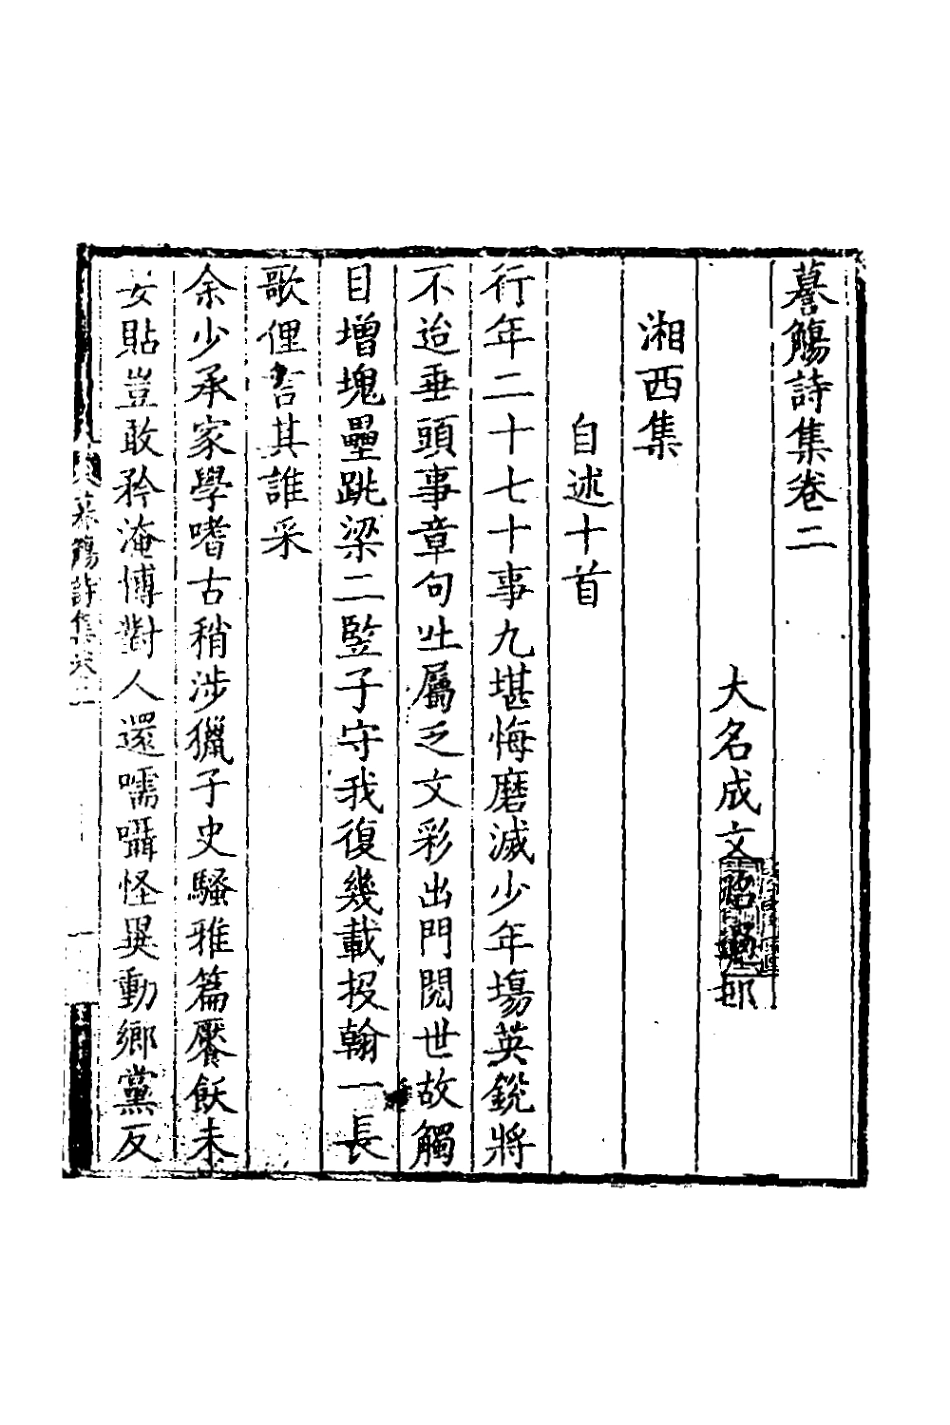 謩觴詩集卷二
大名成文昭
湘西集
自述十首
行年二十七十事九堪悔磨滅少年場英銳將
不迨垂頭事章句吐屬乏文彩出門閱世故觸
目增塊壘跳梁二豎子守我復幾載投翰一長
歌俚言其誰采
余少承家學嗜古稍涉獵子史騷雅篇饜飫未
妥貼豈敢矜淹博對人還嚅囁怪異動鄉黨反
謩觴詩集卷二
一